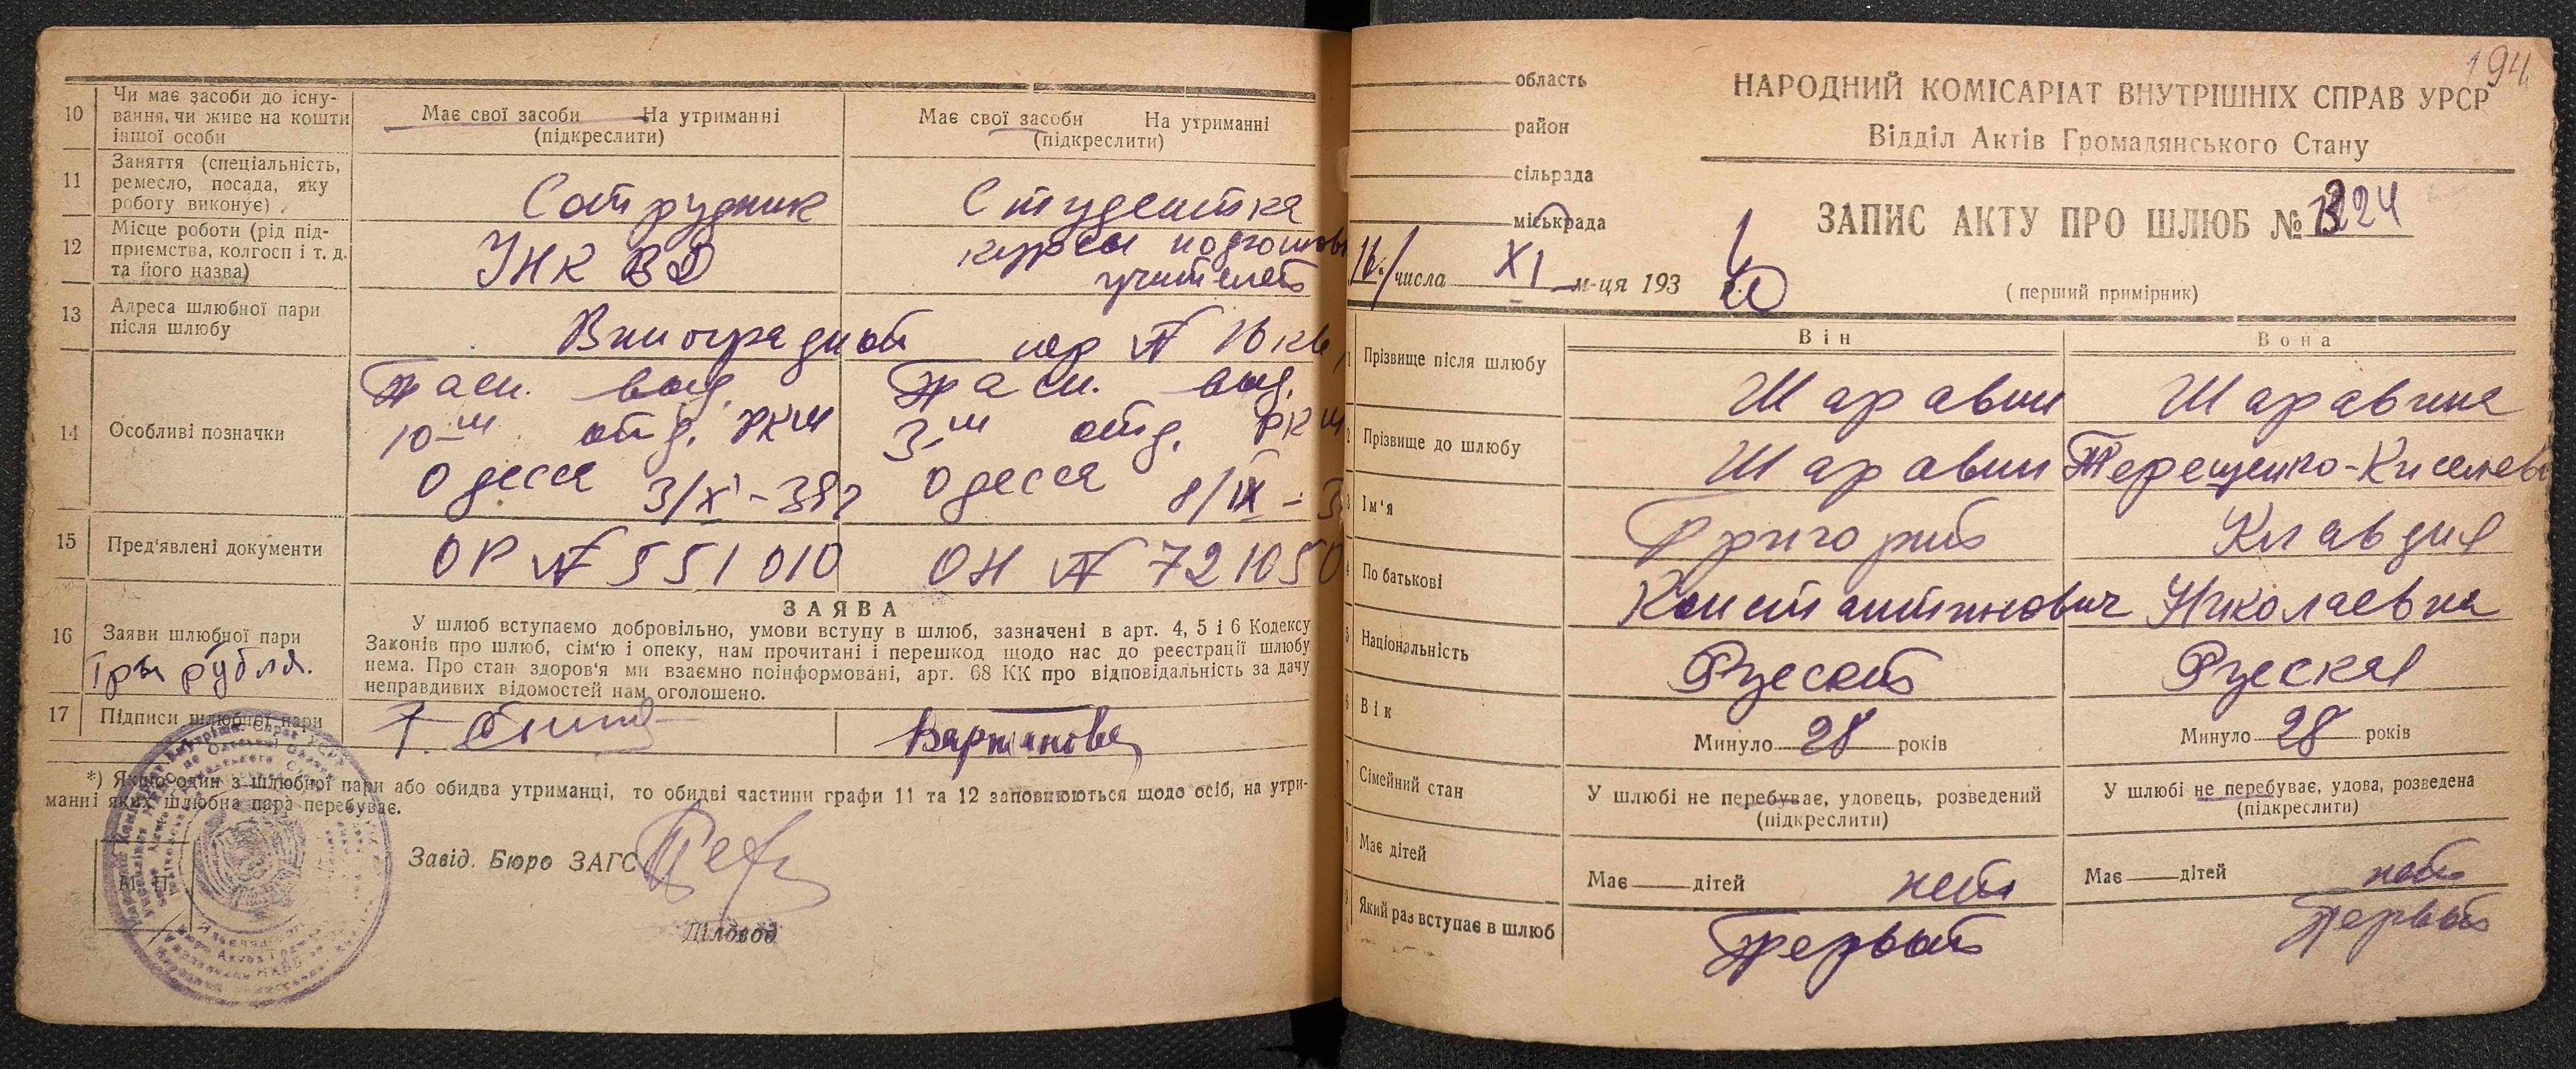 10
Чи має засоби до існу-
вання, чи живе на кошти
іншої особи
Має свої засоби На утриманні
(підкреслити)
Має свої засоби На утриманні
(підкреслити)
11
Заняття (спеціальність,
ремесло, посада, яку
роботу виконує)
Сотрудник
Студентка
12
Місце роботи (рід під-
приємства, колгосп і т. д.
та його назва)
УНКВД
курсы подготовк
учителей
13
Адреса шлюбної пари
після шлюбу
Виноградный пер № 16 кв
14
Особливі позначки
Пасп. выд.
10-м отд. РКМ
Одесса 3/X-39г
Пасп. выд.
3-м отд. РКМ
Одесса 8/IX-3
15
Пред'явлені документи
ОР № 551010
ОН № 721050
16
Заяви шлюбної пари
Три рубля.
ЗАЯВА
У шлюб вступаємо добровільно, умови вступу в шлюб, зазначені в арт. 4, 5 і 6 Кодексу
Законів про шлюб, сім'ю і опеку, нам прочитані і перешкод щодо нас до реєстрації шлюбу
нема. Про стан здоров'я ми взаємно поінформовані, арт. 68 КК про відповідальність за дачу
неправдивих відомостей нам оголошено.
17
Підписи шлюбної пари
Вартанова
*) Якщо один з шлюбної пари або обидва утриманці, то обидві частини графи 11 та 12 заповнюються щодо осіб, на утри-
манні яких шлюбна пара перебуває.
М. П.
Завід. Бюро ЗАГС
Діловод
194
область
район
сільрада
міськрада
НАРОДНИЙ КОМІСАРІАТ ВНУТРІШНІХ СПРАВ УРСР
Відділ Актів Громадянського Стану
ЗАПИС АКТУ ПРО ШЛЮБ №
16 числа XI м-ця 193
(перший примірник)
Він
Вона
1
Прізвище після шлюбу
Шаравин
Шаравина
2
Прізвище до шлюбу
Шаравин
Терещенко-Киселева
3
Ім'я
Григорий
Клавдия
4
По батькові
Константинович
Николаевна
5
Національність
Русский
Русская
6
Вік
Минуло 28 років
Минуло 28 років
7
Сімейний стан
У шлюбі не перебуває, удовець, розведений
(підкреслити)
У шлюбі не перебуває, удова, розведена
(підкреслити)
8
Має дітей
Має дітей нет
Має дітей нет
9
Який раз вступає в шлюб
Первый
Первый